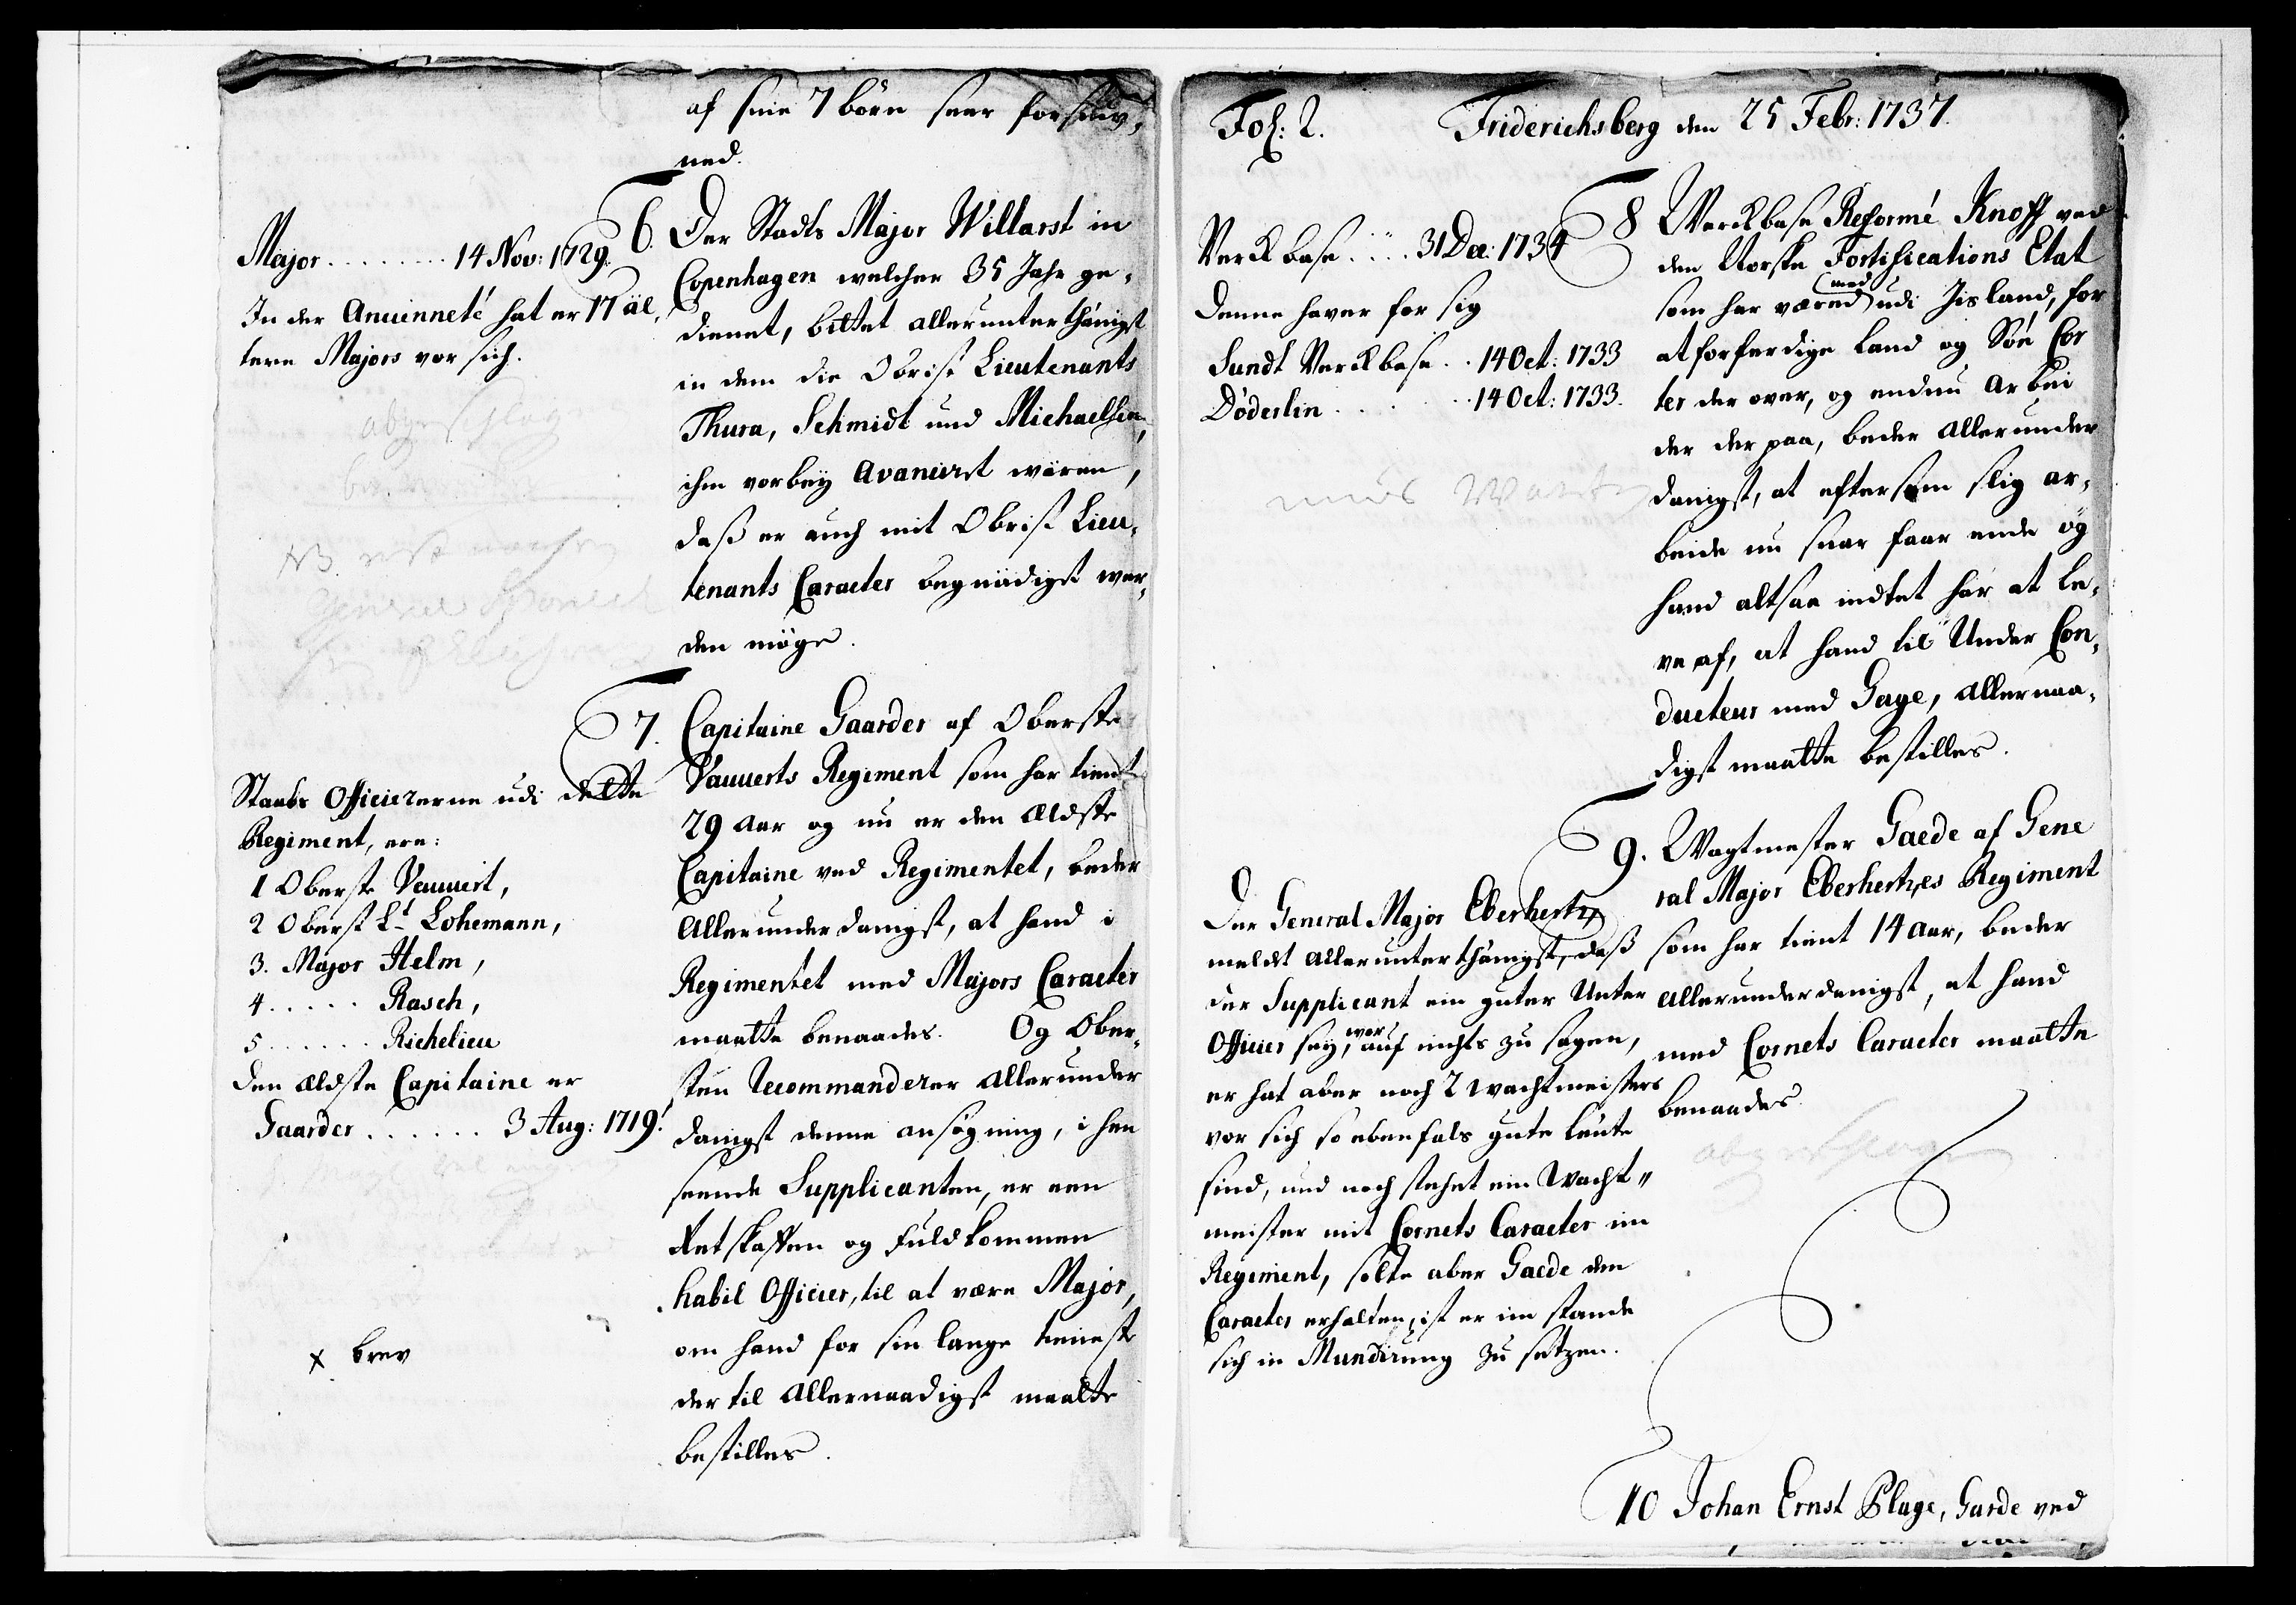 af sine 7 börn saar forsiuv,
ned.
Major ........ 14 Nov: 1729.
In der Anciennetè hat er 17 äl,
tere Majors vor sich.
abgeschlagen
6. Der Stadts Major Willarst in
Copenhagen welcher 35 Jahr ge,
dienet, bittet allerunterthänigst
in dem die Obrist Lieutenants
Thura, Schmidt und Michaelsen,
ihm vorbey avancirt wären,
daß er auch mit Obrist Lieu,
tenants Caracter begnädiget wer,
den möge.
7. Capitaine Gaarder af Oberste
Vauverts Regiment som har tient
29 aar og nu er den ældste
Capitaine ved Regimentet, beder
allerunderdanigst, at hand i
Regimentet med Majors Caracter
maatte benaades. Og Ober,
sten recommanderer allerunder
danigst denne ansögning, i hen
seende Supplicanten, er een
Retskaffen og fuldkommen
habil Officier, til at være Major,
om hand for sin lange tieneste
der til allernaadigst maatte
bestilles.
Staabs Officiererne udi dette
Regiment, ere:
1 Oberste Vauvert,
2 Oberst Lt Lohemann,
3. Major Helm,
4 ..... Rasch,
5 ...... Richelieu
Den ældste Capitaine er
Gaarder ...... 3 Aug: 1719.
x brev
Fol: 2. Friderichsberg den 25 Febr: 1737.
Verckbase ..... 31 Dec: 1734
Denne haver for sig
Sundt Verckbase .. 14 Oct: 1733
Döderlin ....... 14 Oct: 1733.
mus warten
8 Werckbase Reformé Knoff ved
den Norske Fortifications Etat
som har været med udi Jisland, for
at forferdige Land og Söe Cor
ter der over, og endnu arbei
der der paa, beder allerunder
danigst, at eftersom slig ar,
beide nu snar faar ende og
hand altsaa indtet har at le,
ve af, at hand til Under Con,
ducteur med Gage, allernaa,
digst maatte bestilles.
9. Wagtmester Gaede af Gene
ral Major Eberhertzes Regiment
som har tient 14 aar, beder
allerunderdanigst, at hand
med Cornets Caracter maatte
benaades.
abgeschlagen
Der General Major Eberhertz
meldt allerunterthänigst, daß
der Supplicant ein guter Unter
Officier sey, worauf nichts zu sagen,
er hat aber noch 2 Wachtmeisters
vor sich so ebenfals gute Leute
sind, und noch stehet ein Wacht"
meister mit Cornets Caracter im
Regiment, solte aber Gaede den
Caracter erhalten, ist er im stande
sich in Mundirung zu setzen.
10 Johan Ernst Plage, Garde ved